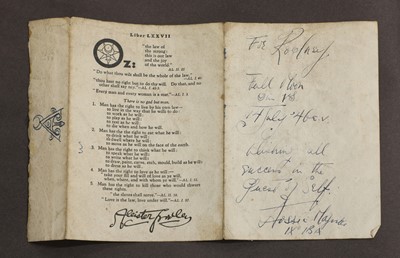 Liber LXXVII
Oz:
"the law of
the strong:
this is our law
and the joy
of the world."
—AL. II. 21
"Do what thou wilt shall be the whole of the law."
—AL. I. 40
"thou hast no right but to do thy will. Do that, and no
other shall say nay."—AL. I. 42-3
"Every man and every woman is a star."—AL. I. 3
There is no god but man.
1. Man has the right to live by his own law—
to live in the way that he wills to do:
to work as he will:
to play as he will:
to rest as he will:
to die when and how he will.
2. Man has the right to eat what he will:
to drink what he will:
to dwell where he will:
to move as he will on the face of the earth.
3. Man has the right to think what he will:
to speak what he will:
to write what he will:
to draw, paint, carve, etch, mould, build as he will:
to dress as he will.
4. Man has the right to love as he will:—
"take your fill and will of love as ye will,
when, where, and with whom ye will."—AL. I. 51
5. Man has the right to kill those who would thwart
these rights.
"the slaves shall serve."—AL. II. 58
"Love is the law, love under will."—AL. I. 57
Aleister Crowley
For
Full Moon
in
all
success in the
of Self